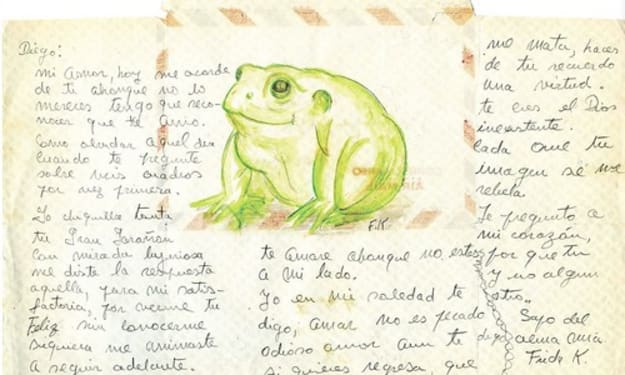 Diego:
mi amor, hoy me acorde
de ti ahonque no lo
mereces tengo que reco-
nocer que te amo.
Como olvidar aquel dia
cuando te pregunte
sobre mis cuadros
por vez primera.
Yo chiquilla tonta
tu gran
con mirada lujuriosa
me diste la respuesta
aquella, para mi satis-
factoria, por verme
feliz sin conocerme
siquiera me animaste
a seguir adelante.
F.K
te amare ahonque no estes
a mi lado.
Yo en mi soledad te
digo, amar no es pecado
odioso amor aun te digo
si quieres regresa, que
me mata, haces
de tu recuerdo
una virtud.
te eres el Dios
inexistente.
cada que tu
imagen se me
rebela.
Te pregunto a
mi corazón,
por que tu
y no algun
otro.
del
alma mia.
Frida K.